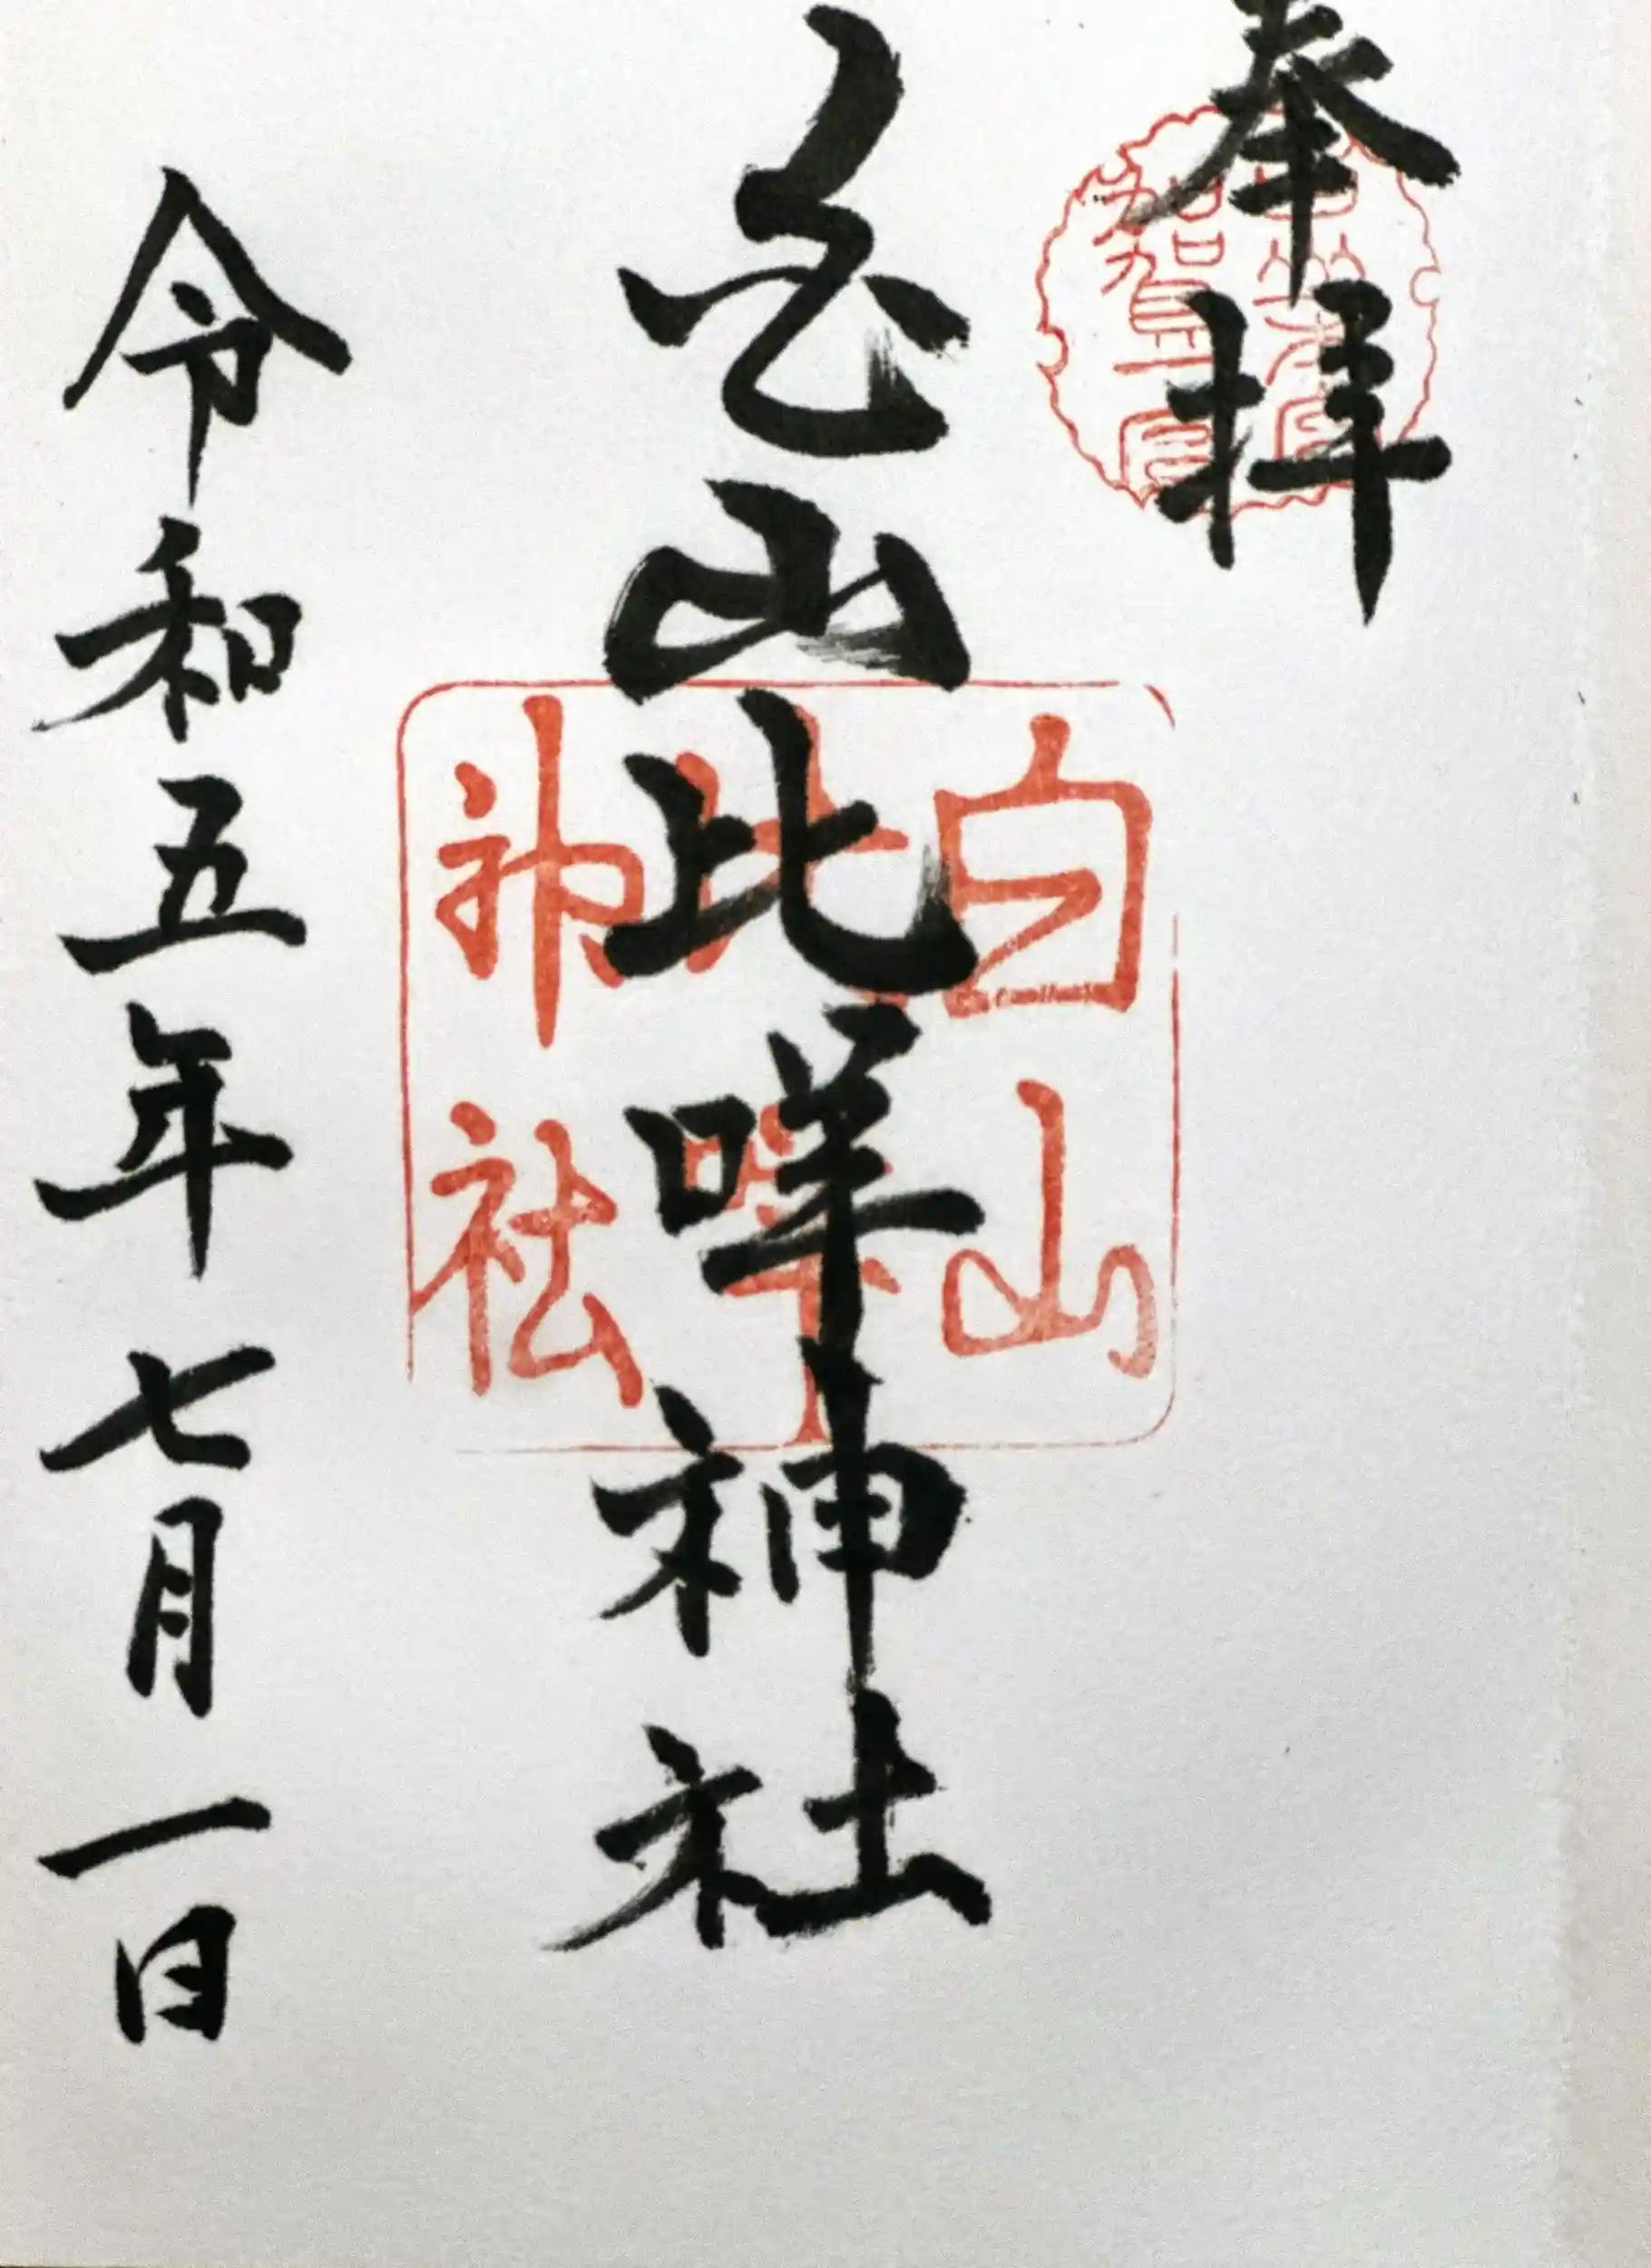 奉拝
白山比咩神社
白山
比咩
神社
令和五年七月一日